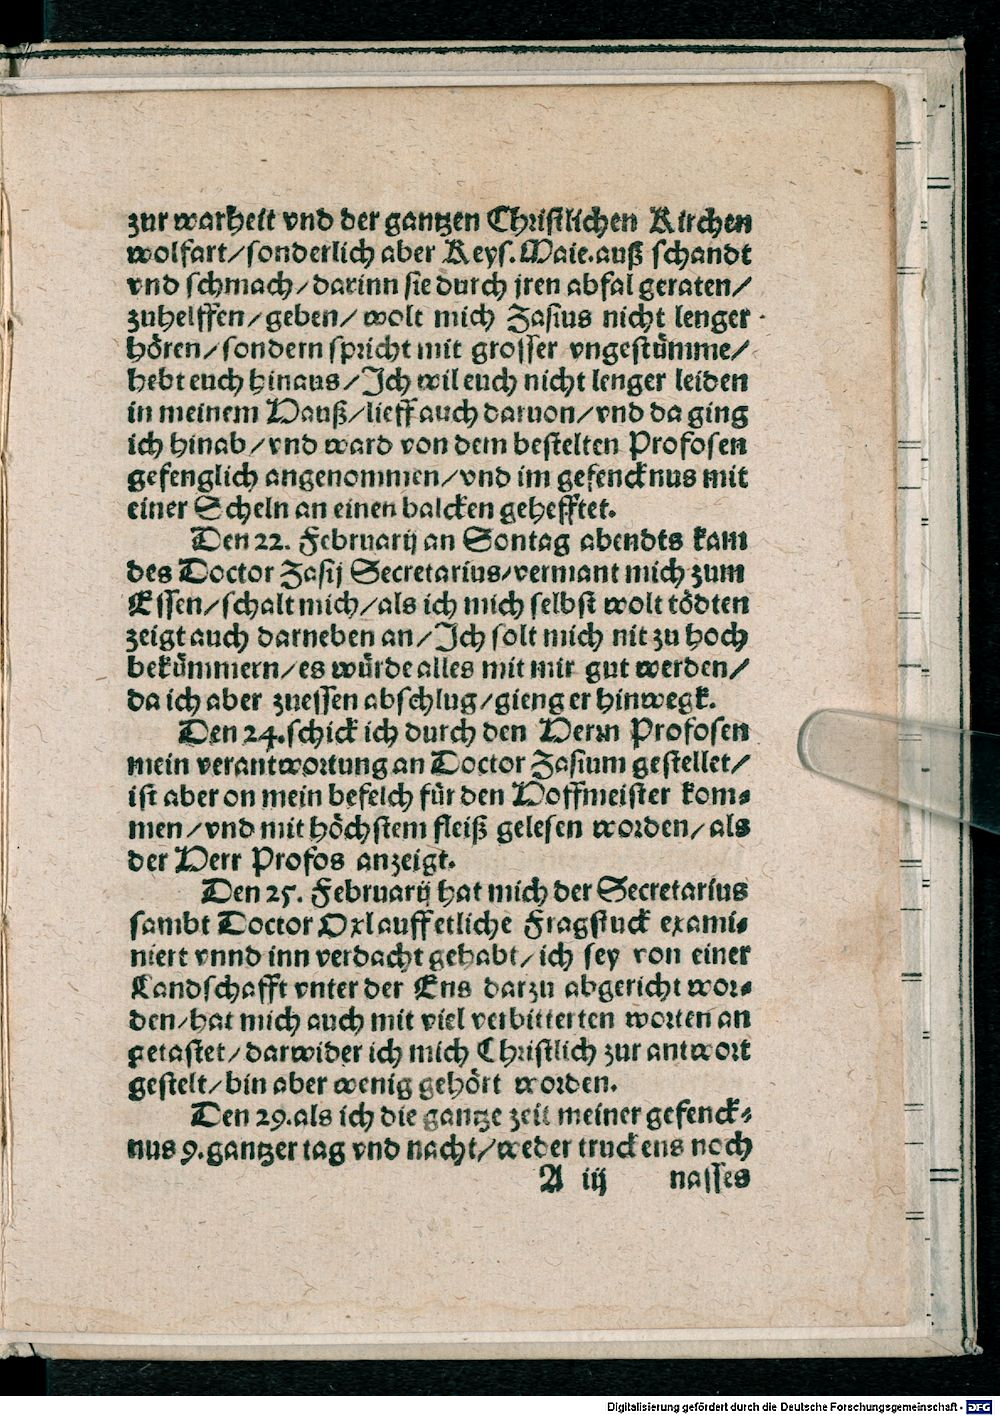 zur warheit vnd der gantzen Christlichen Kirchen
wolfart/sonderlich aber Keys. Maie. auß schandt
vnd schmach/darinn sie durch jren abfal geraten/
zuhelffen/geben/wolt mich Zasius nicht lenger
hören/sondern spricht mit grosser vngestümme/
hebt euch hinaus/Ich wil euch nicht lenger leiden
in meinem Hauß/lieff auch daruon/vnd da ging
ich hinab/vnd ward von dem bestelten Profosen
gefenglich angenommen/vnd im gefencknus mit
einer Scheln an einen balcken gehefftet.
Den 22. Februarij an Sontag abendts kam
des Doctor Zasij Secretarius/vermant mich zum
Essen/schalt mich/als ich mich selbst wolt tödten
zeigt auch darneben an/Ich solt mich nit zu hoch
bekümmern/es würde alles mit mir gut werden/
da ich aber zuessen abschlug/gieng er hinwegk.
Den 24. schick ich durch den Herrn Profosen
mein verantwortung an Doctor Zasium gestellet/
ist aber on mein befelch für den Hoffmeister kom-
men/vnd mit höchstem fleiß gelesen worden/als
der Herr Profos anzeigt.
Den 25. Februarij hat mich der Secretarius
sambt Doctor Oxl auff etliche Fragstuck exami-
niert vnnd inn verdacht gehabt/ich sey von einer
Landschafft vnter der Ens darzu abgericht wor-
den/hat mich auch mit viel verbitterten worten an
getastet/darwider ich mich Christlich zur antwort
gestelt/bin aber wenig gehört worden.
Den 29. als ich die gantze zeit meiner gefenck-
nus 9. gantzer tag vnd nacht/weder truckens noch
A iij nasses
Digitalisierung gefördert durch die Deutsche Forschungsgemeinschaft - DFG